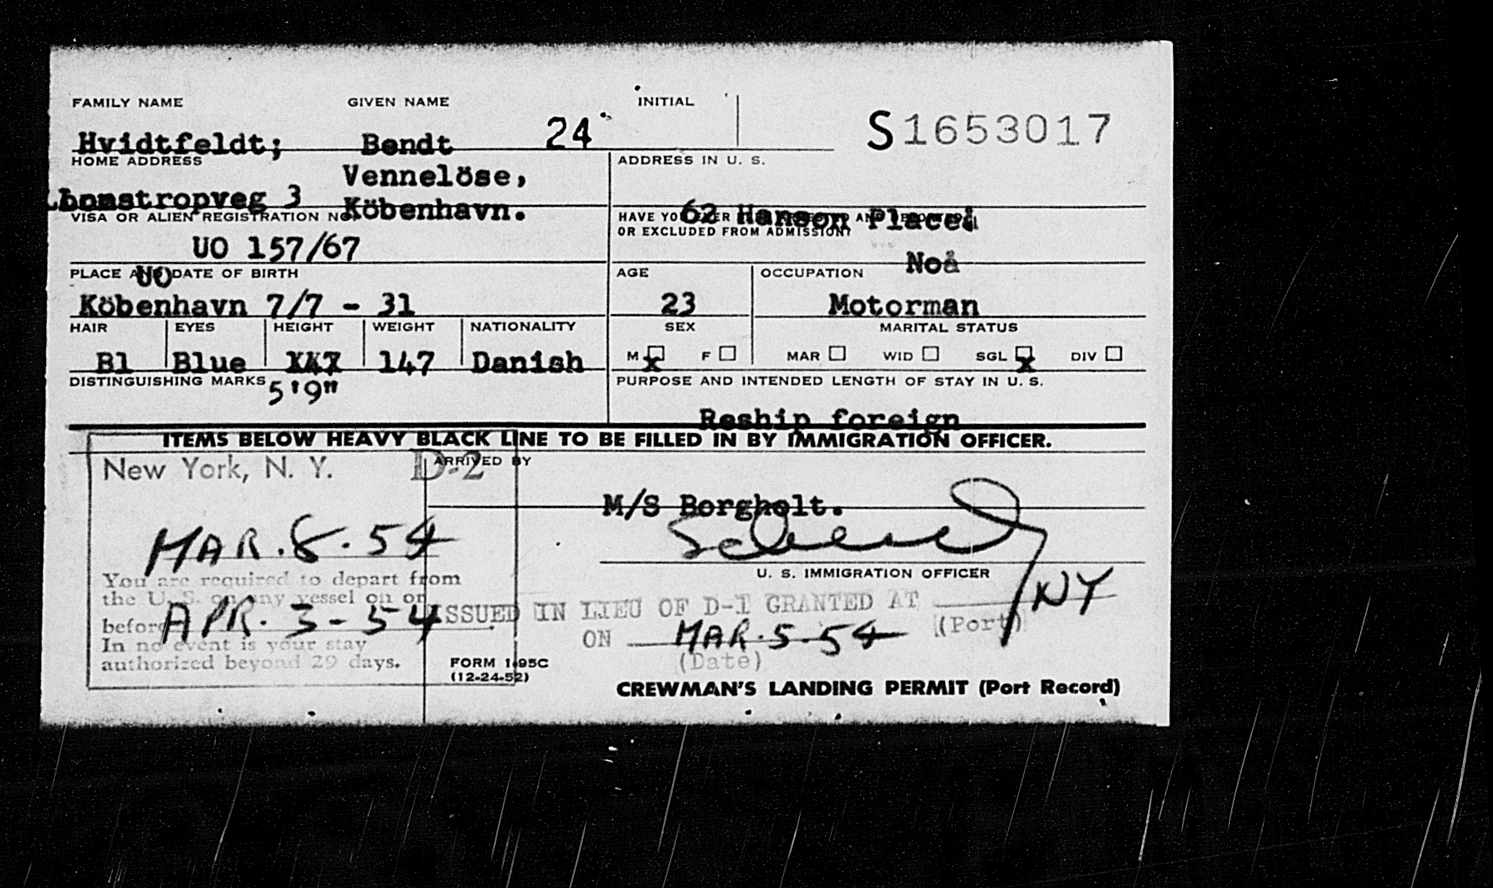 FAMILY NAME GIVEN NAME INITIAL
Hvidtfeldt; Bendt 24 S1653017
HOME ADDRESS Vennelöse, ADDRESS IN U. S.
3 Köbenhavn. 62 Hanson Place
VISA OR ALIEN REGISTRATION NO. HAVE YOU EVER
OR EXCLUDED FROM ADMISSION
UO 157/67
No
PLACE AND DATE OF BIRTH UO AGE OCCUPATION
Köbenhavn 7/7 - 31 23 Motorman
HAIR EYES HEIGHT WEIGHT NATIONALITY SEX MARITAL STATUS
Bl Blue 147 Danish M x F MAR WID SGL x DIV
DISTINGUISHING MARKS 5'9" PURPOSE AND INTENDED LENGTH OF STAY IN U. S.
Reship foreign
ITEMS BELOW HEAVY BLACK LINE TO BE FILLED IN BY IMMIGRATION OFFICER.
New York, N. Y. D-2 ARRIVED BY
M/S Borgholt.
MAR. 8. 54
U. S. IMMIGRATION OFFICER
You are required to depart from
the U. S. on any vessel on or
before APR. 3-54
ISSUED IN LIEU OF D-1 GRANTED AT NY (Port)
ON MAR. 5-54
(Date)
In no event is your stay
authorized beyond 29 days.
FORM I-95C
(12-24-52)
CREWMAN'S LANDING PERMIT (Port Record)